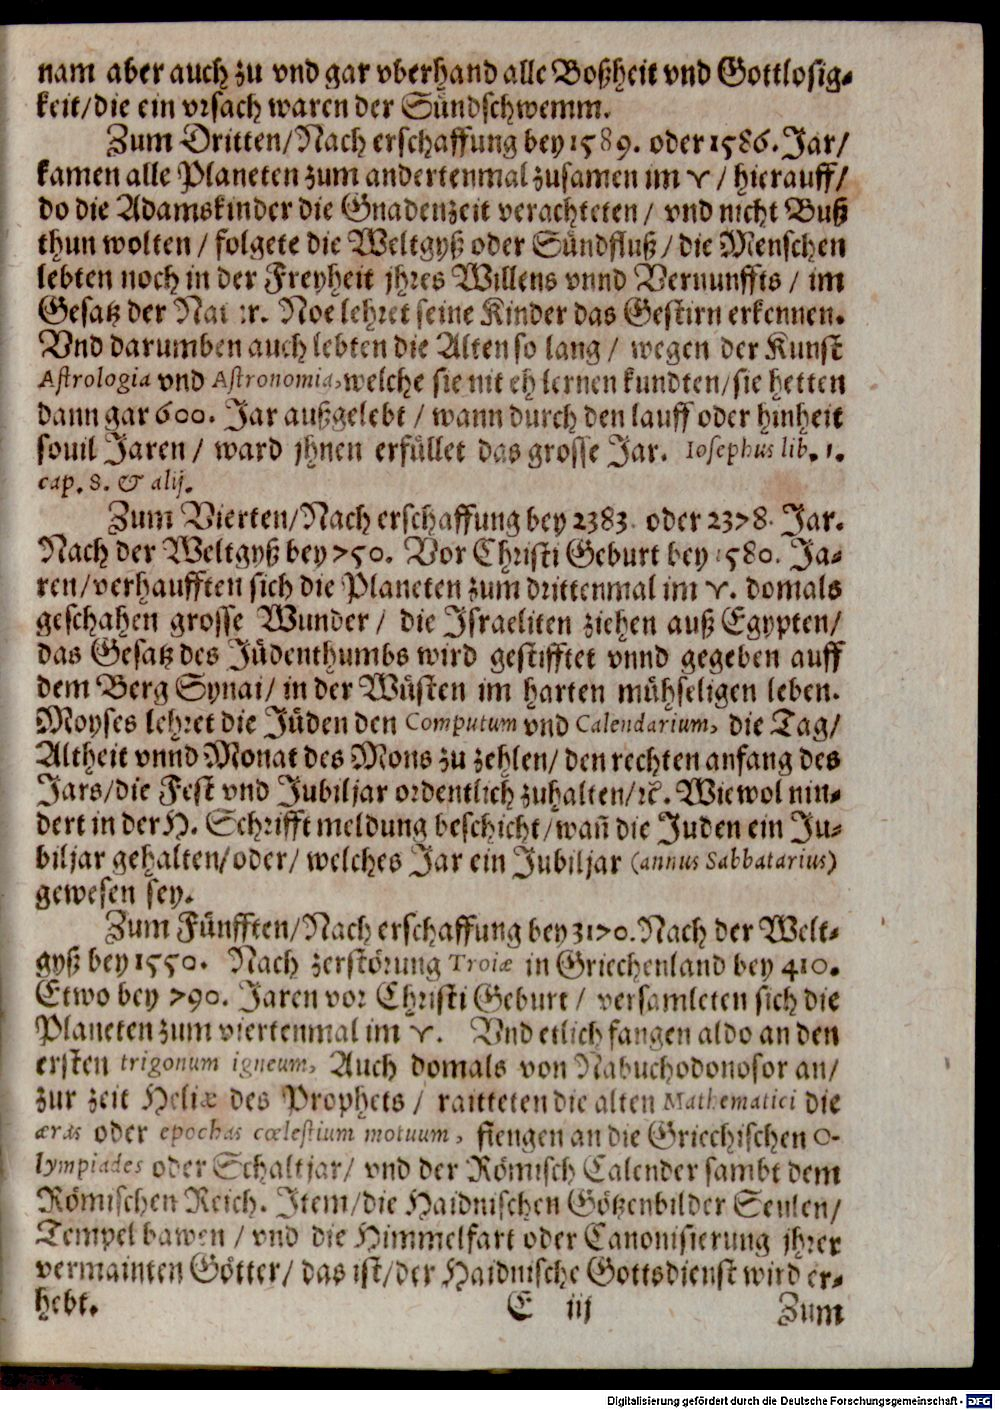 nam aber auch zu vnd gar vberhand alle Boßheit vnd Gottlosig-
keit/die ein vrsach waren der Sündschwemm.
Zum Dritten/Nach erschaffung bey 1589. oder 1586. Jar/
kamen alle Planeten zum andertenmal zusamen im ♈/ hierauff/
do die Adamskinder die Gnadenzeit verachteten / vnd nicht Buß
thun wolten / folgete die Weltgyß oder Sündfluß / die Menschen
lebten noch in der Freyheit jhres Willens vnnd Vernunffts / im
Gesatz der Natur. Noe lehret seine Kinder das Gestirn erkennen.
Vnd darumben auch lebten die Alten so lang / wegen der Kunst
Astrologia vnd Astronomia, welche sie nit eh lernen kundten/sie hetten
dann gar 600. Jar außgelebt / wann durch den lauff oder hinheit
souil Jaren / ward jhnen erfüllet das grosse Jar. Iosephus lib. 1.
cap. 8. & alij.
Zum Vierten/Nach erschaffung bey 2383. oder 2378. Jar.
Nach der Weltgyß bey 750. Vor Christi Geburt bey 1580. Ja-
ren/verhaufften sich die Planeten zum drittenmal im ♈. domals
geschahen grosse Wunder / die Israeliten ziehen auß Egypten/
das Gesatz des Jüdenthumbs wird gestifftet vnnd gegeben auff
dem Berg Synai/ in der Wüsten im harten mühseligen leben.
Moyses lehret die Jüden den Computum vnd Calendarium, die Tag/
Altheit vnnd Monat des Mons zu zehlen/ den rechten anfang des
Jars/die Fest vnd Jubiljar ordentlich zuhalten/ꝛc. Wiewol nin-
dert in der H. Schrifft meldung beschicht/wañ die Juden ein Ju-
biljar gehalten/oder/ welches Jar ein Jubiljar (annus Sabbatarius)
gewesen sey.
Zum Fünfften/Nach erschaffung bey 3170. Nach der Welt-
gyß bey 1550. Nach zerstörung Troiæ in Griechenland bey 410.
Etwo bey 790. Jaren vor Christi Geburt / versamleten sich die
Planeten zum viertenmal im ♈. Vnd etlich fangen aldo an den
ersten trigonum igneum, Auch domals von Nabuchodonosor an/
zur zeit Heliæ des Prophets / raitteten die alten Mathematici die
æras oder epochas cœlestium motuum, fiengen an die Griechischen O-
lympiades oder Schaltjar/ vnd der Römisch Calender sambt dem
Römischen Reich. Item/die Haidnischen Götzenbilder Seulen/
Tempel bawen / vnd die Himmelfart oder Canonisierung jhrer
vermainten Götter/ das ist/der Haidnische Gottsdienst wird er-
hebt.
E iij Zum
Digitalisierung gefördert durch die Deutsche Forschungsgemeinschaft - DFG